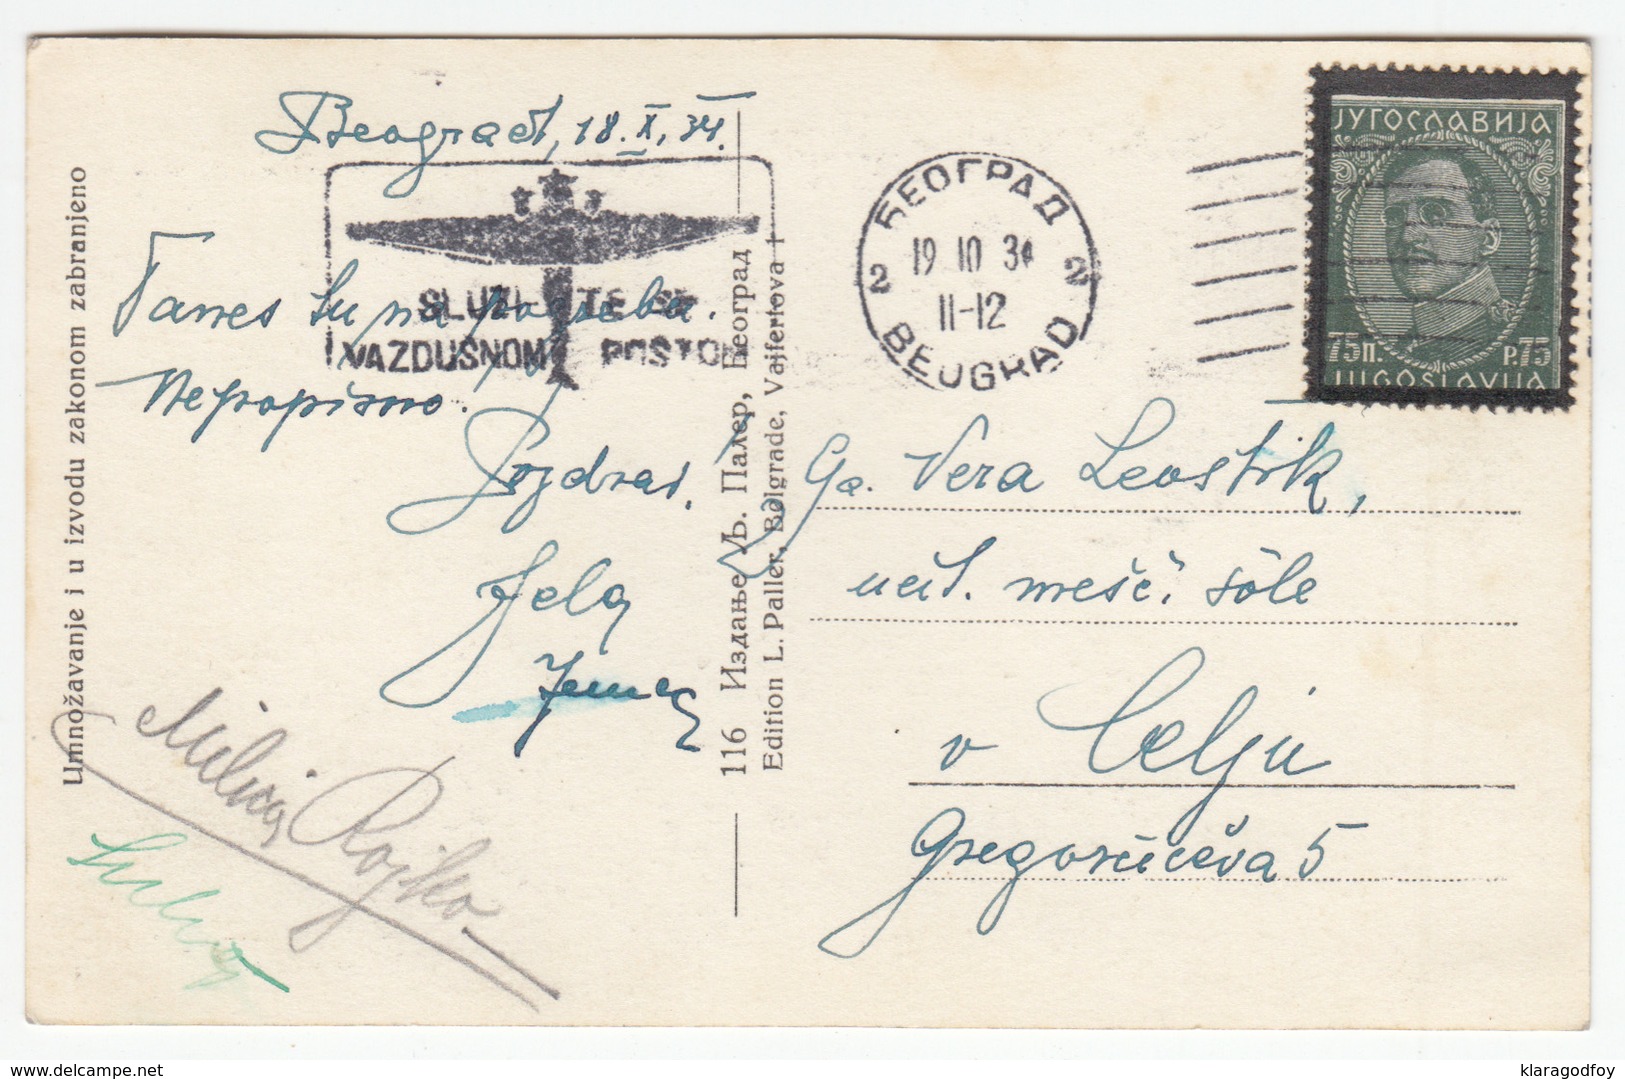 Beograd, 18. X. 34.
SLUŽITE SE
VAZDUŠNOM POŠTOM
Danes su na pogrebu.
Nepopisno.
Pozdrav,
Jela
Milica Rojko
Umnožavanje i u izvodu zakonom zabranjeno
116 Издање Љ. Палер, Београд
Edition L. Paller, Belgrade, Vajfertova †
БЕОГРАД
2 19 10 34 2
11-12
BEOGRAD
ЈУГОСЛАВИЈА
75П. P.75
JUGOSLAVIJA
Ga. Vera Levstik,
učit. mešč. šole
v Celju
Gregorčičeva 5
www.delcampe.net
klaragodfoy